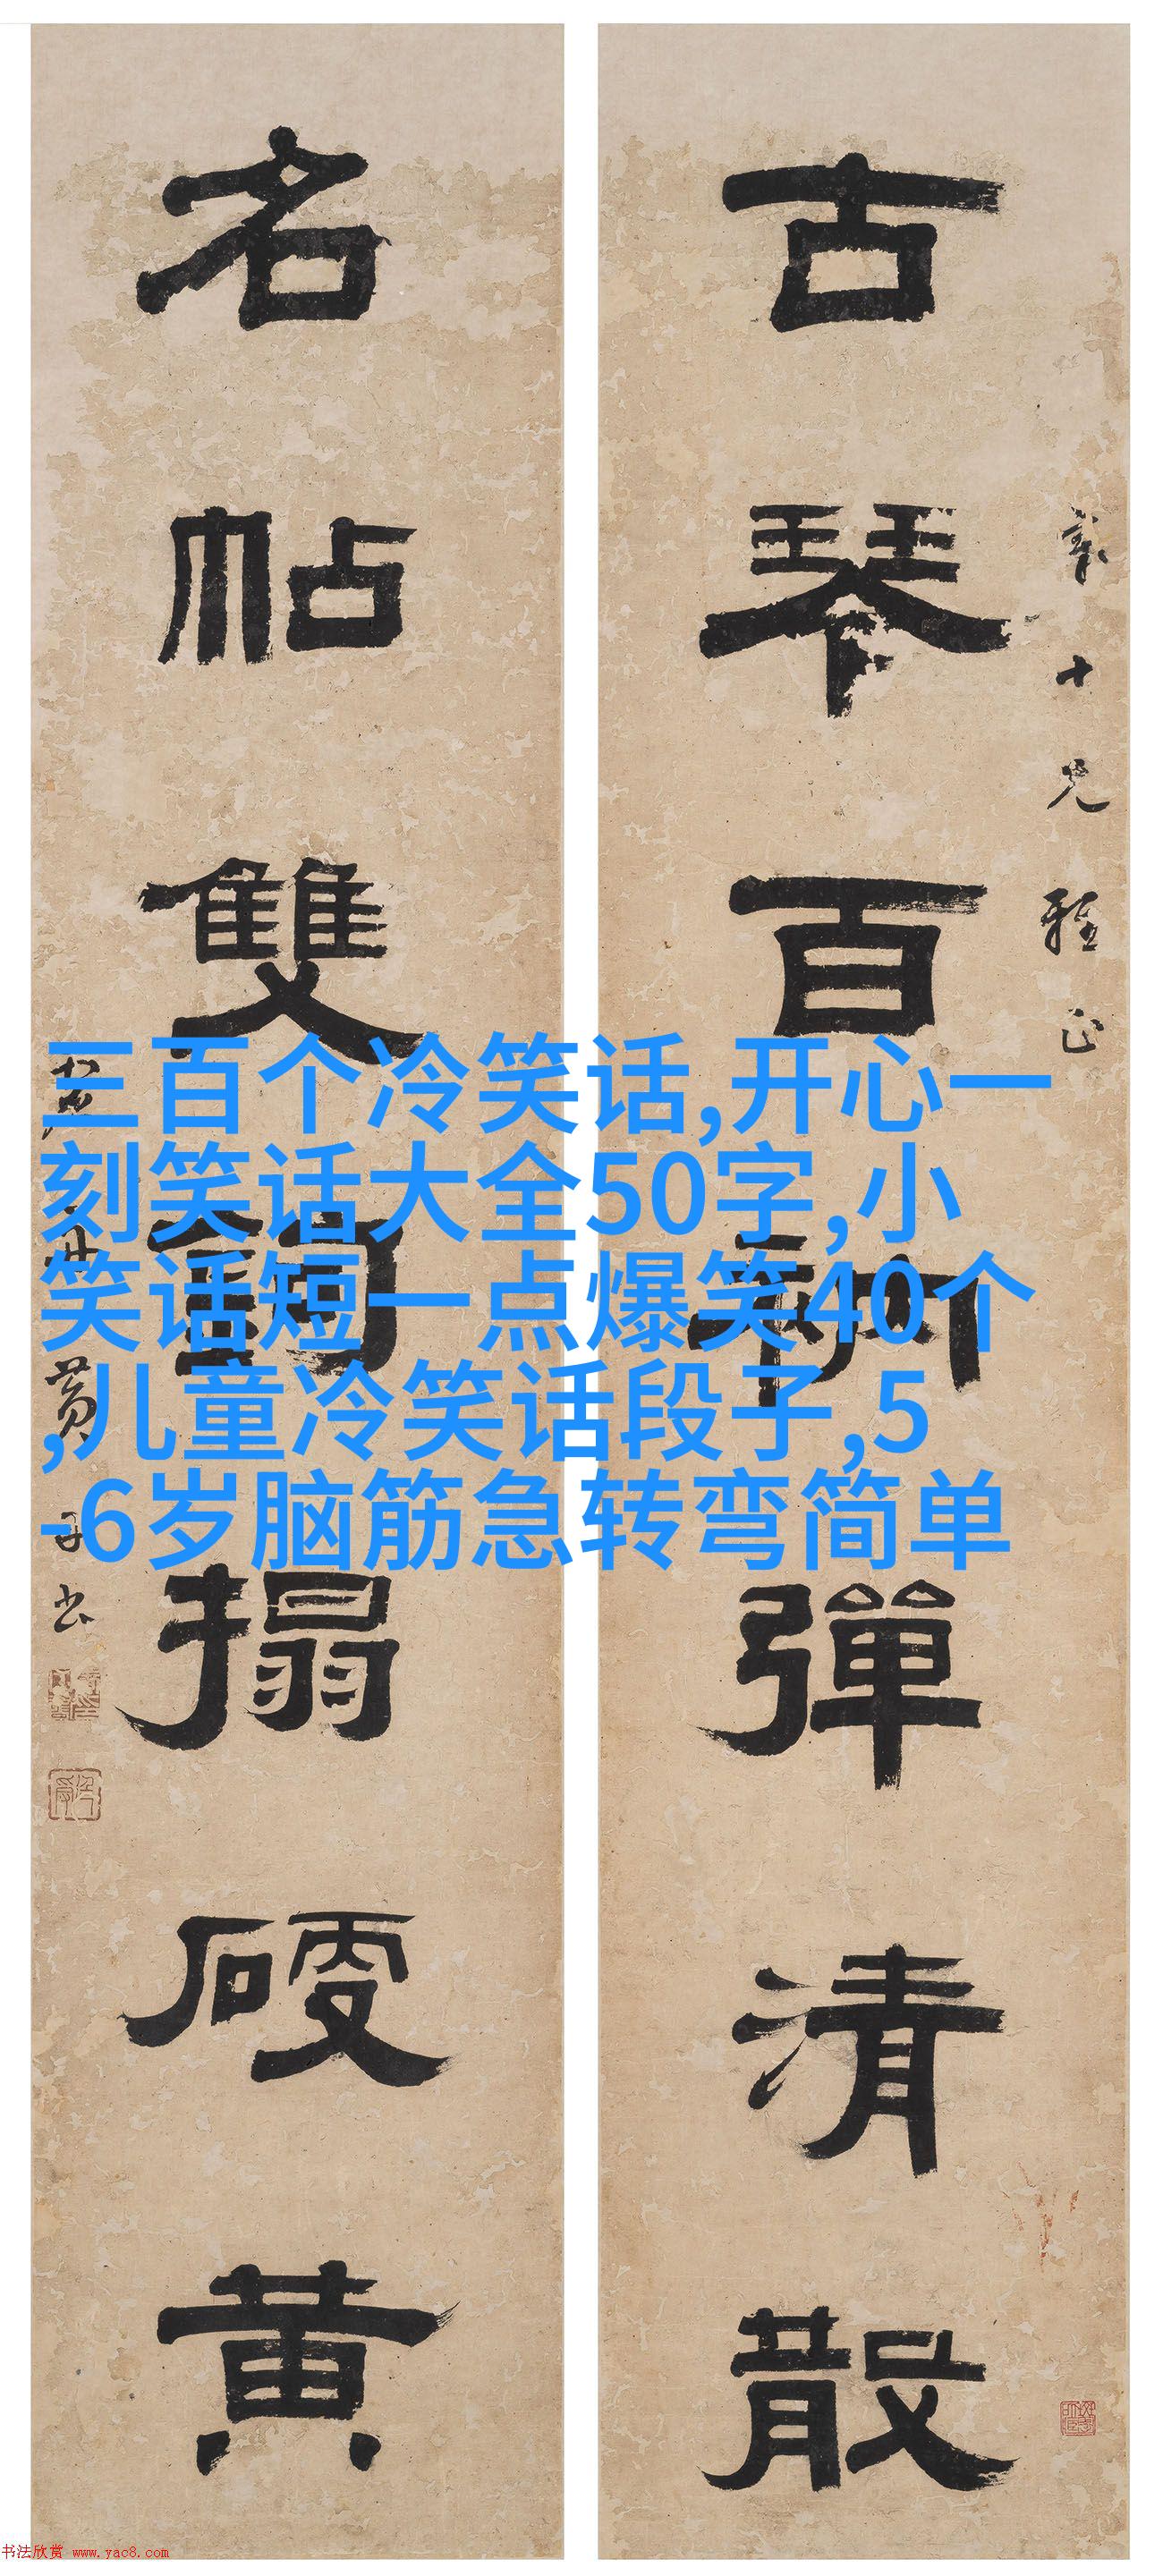 古琴百衲彈清散
戴十兄雅正
名帖雙鉤搨硬黄
三百个冷笑话,开心一
刻笑话大全50字,小
笑话短一点爆笑40个
,儿童冷笑话段子,5
-6岁脑筋急转弯简单
书法欣赏 www.yac8.com